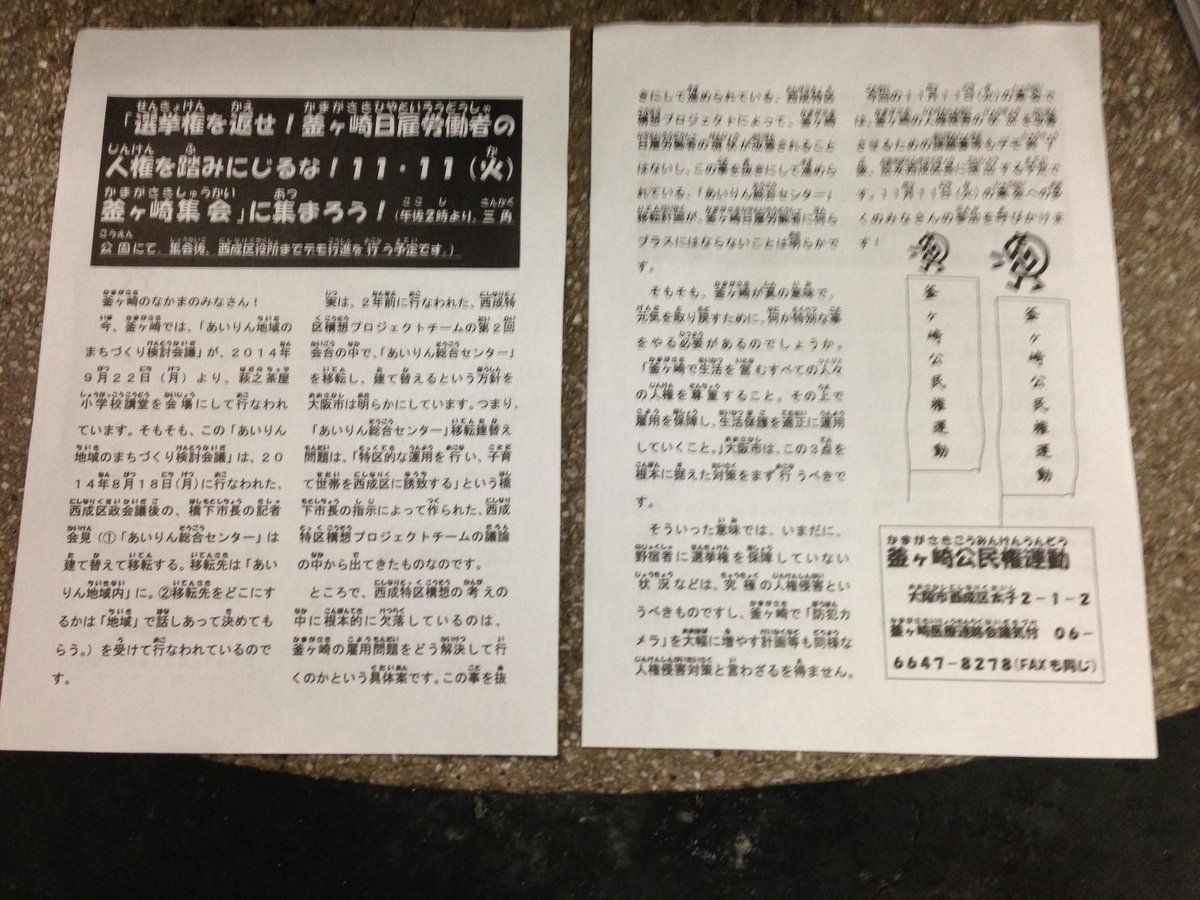 「選挙権を返せ！釜ヶ崎日雇労働者の
人権を踏みにじるな！11・11（火）
釜ヶ崎集会」に集まろう！（午後2時より、三角
公園にて、集会後、西成区役所までデモ行進を行う予定です。）
釜ヶ崎のなかまのみなさん！
今、釜ヶ崎では、「あいりん地域の
まちづくり検討会議」が、２０１４年
９月２２日（月）より、萩之茶屋
小学校講堂を会場にして行なわれ
ています。そもそも、この「あいりん
地域のまちづくり検討会議」は、２０
１４年８月１８日（月）に行なわれた、
西成区政会議後の、橋下市長の記者
会見（①「あいりん総合センター」は
建て替えて移転する。移転先は「あい
りん地域内」に。②移転先をどこにす
るかは「地域」で話しあって決めても
らう。）を受けて行なわれているので
す。
実は、２年前に行なわれた、西成特
区構想プロジェクトチームの第２回
会合の中で、「あいりん総合センター」
を移転し、建て替えるという方針を
大阪市は明らかにしています。つまり、
「あいりん総合センター」移転建替え
問題は、「特区的な運用を行い、子育
て世帯を西成区に誘致する」という橋
下市長の指示によって作られた、西成
特区構想プロジェクトチームの議論
の中から出てきたものなのです。
ところで、西成特区構想の考えの
中に根本的に欠落しているのは、
釜ヶ崎の雇用問題をどう解決して行
くのかという具体案です。この事を抜
きにして進められている、西成特区
構想プロジェクトによって、釜ヶ崎
日雇労働者の現状が改善されること
はないし、この事を抜きにして進めら
れている、「あいりん総合センター」
移転計画が、釜ヶ崎日雇労働者に何ら
プラスにはならないことは明らかで
す。
そもそも、釜ヶ崎が真の意味で、
元気を取り戻すために、何か特別な事
をやる必要があるのでしょうか。
「釜ヶ崎で生活を営むすべての人々
の人権を尊重すること。その上で
雇用を保障し、生活保護を適正に運用
していくこと。」大阪市は、この３点を
根本に据えた対策をまず行うべきで
す。
そういった意味では、いまだに、
野宿者に選挙権を保障していない
状況などは、究極の人権侵害とい
うべきものですし、釜ヶ崎で「防犯カ
メラ」を大幅に増やす計画等も同様な
人権侵害対策と言わざるを得ません。
今回の１１月１１日（火）の集会で
は、釜ヶ崎の人権侵害の状況を改善
させるための
です。１１月１１日（火）の集会への多
くのみなさんの参加を呼びかけま
す！
釜ヶ崎公民権運動
釜ヶ崎公民権運動
釜ヶ崎公民権運動
大阪市西成区太子２－１－２
釜ヶ崎医療連絡会議気付　０６－
６６４７－８２７８（FAXも同じ）